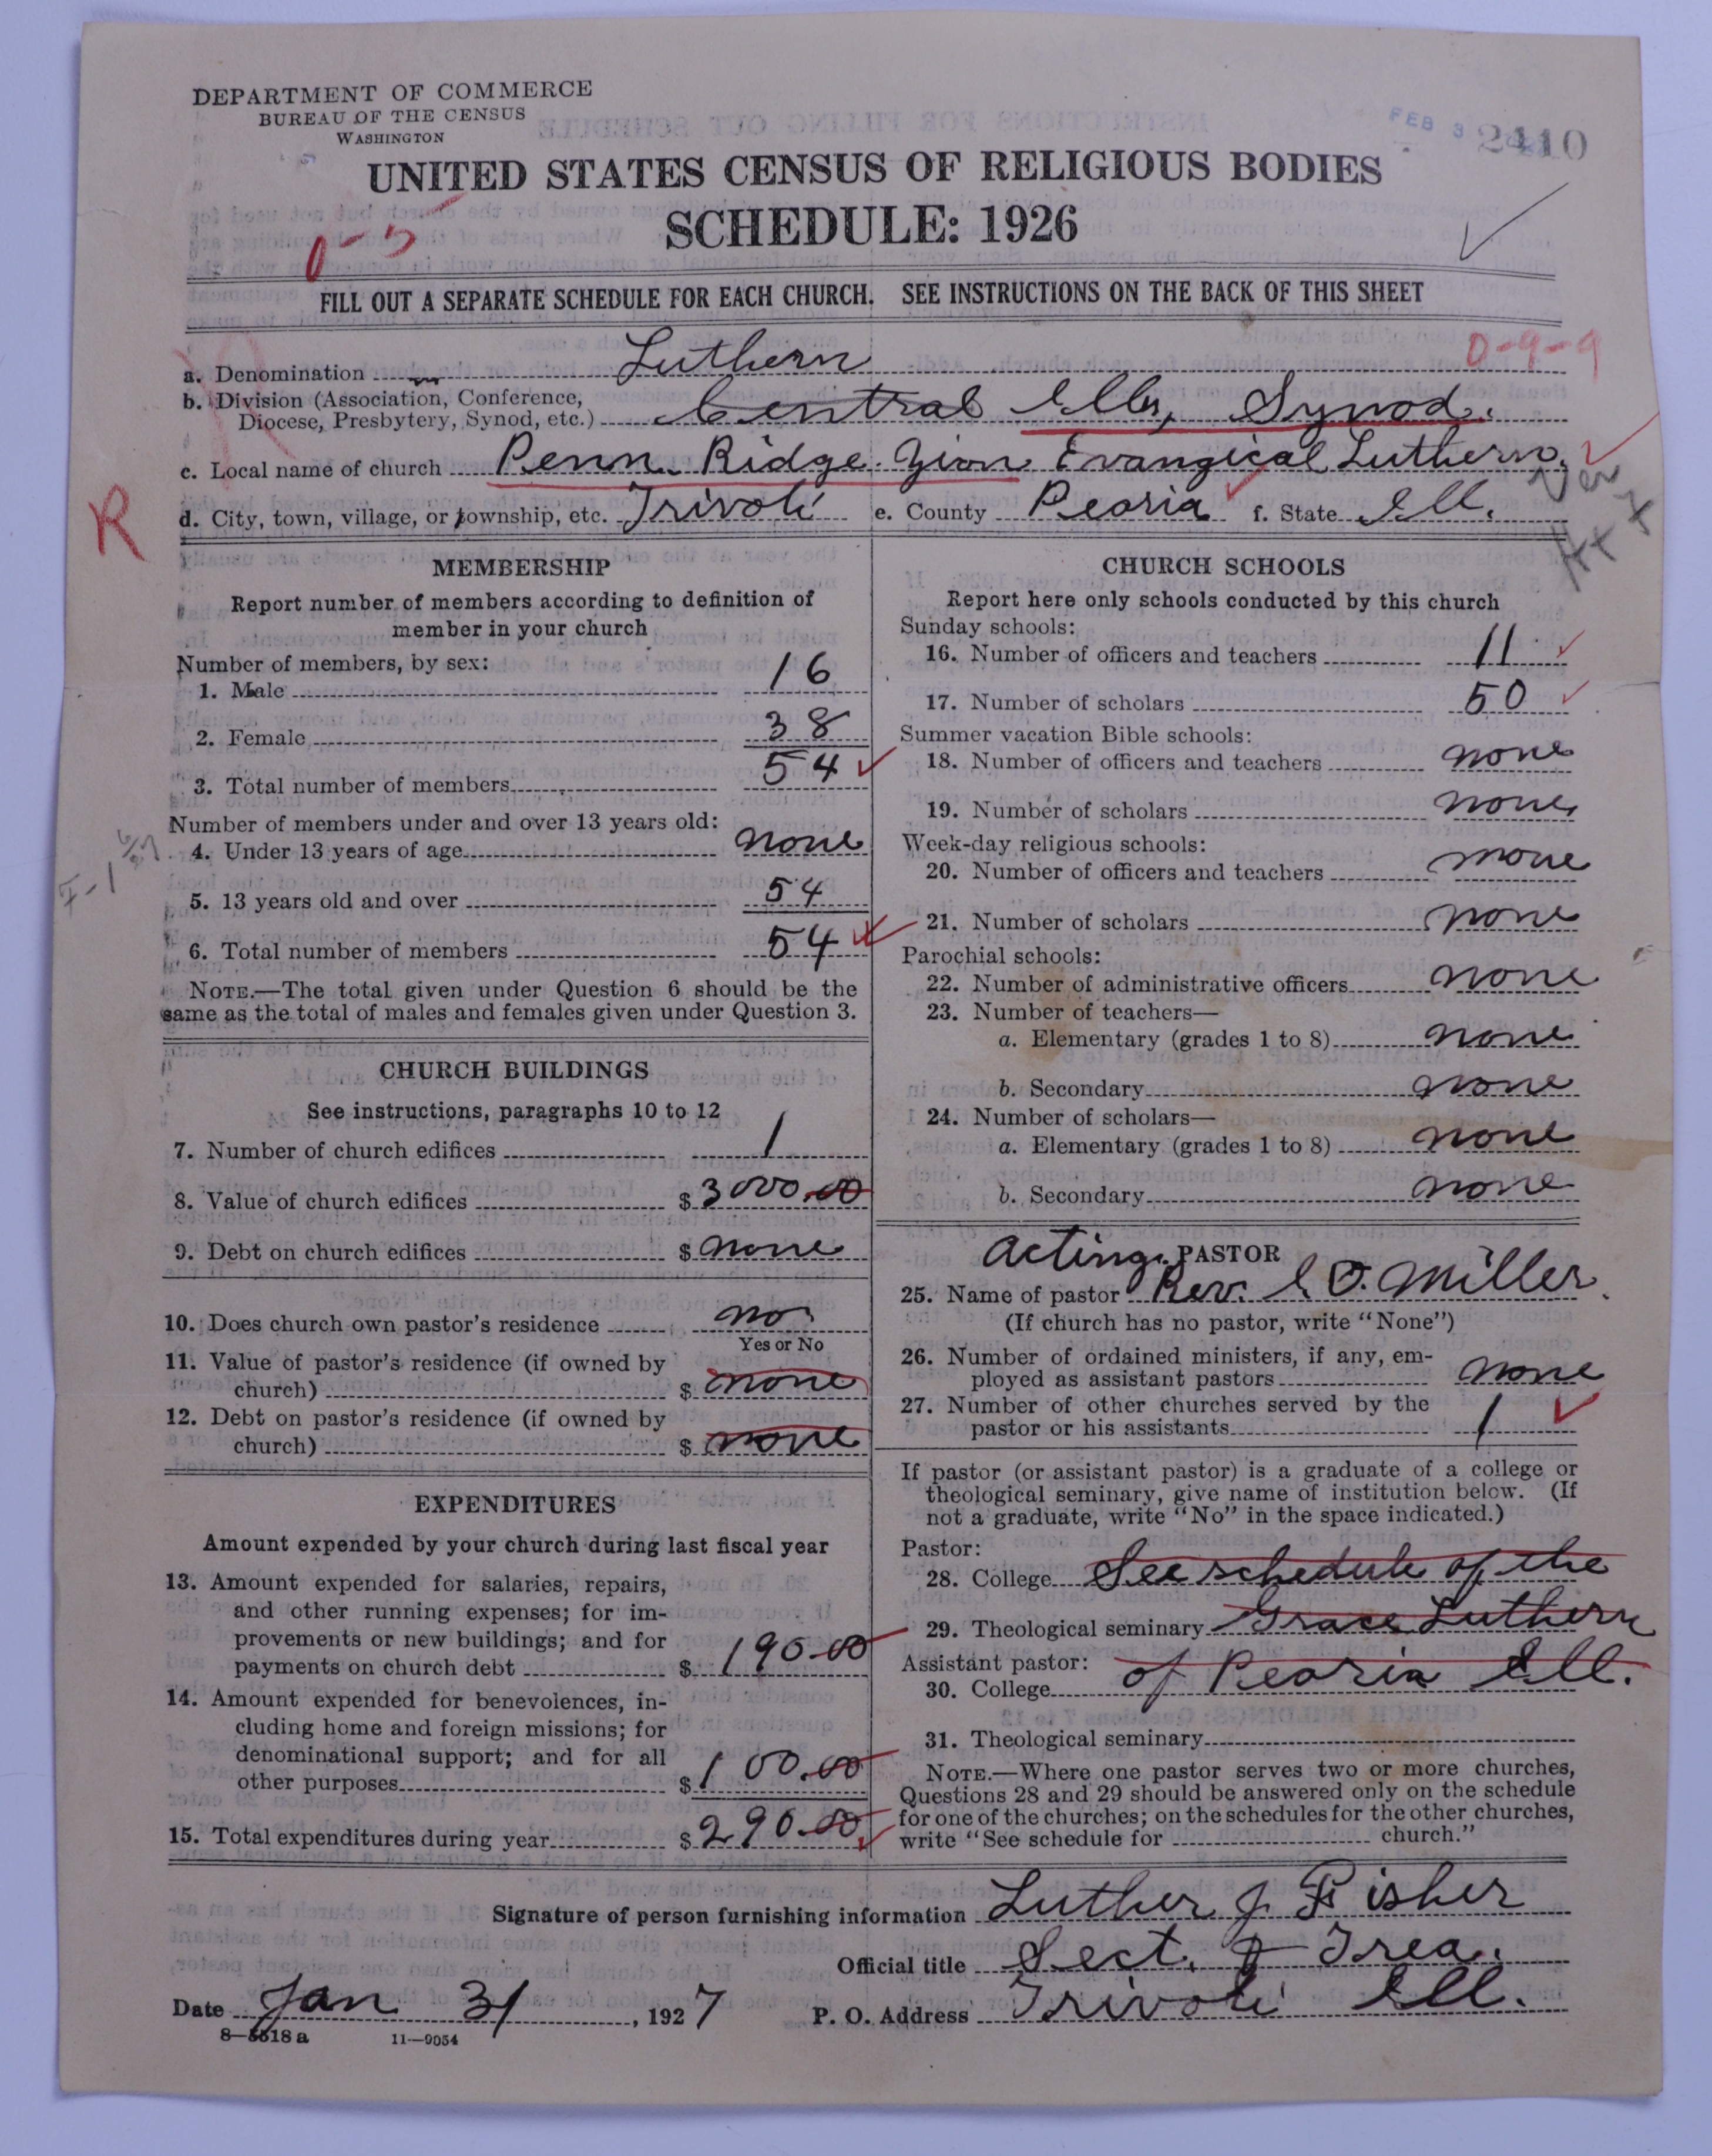 DEPARTMENT OF COMMERCE
BUREAU OF THE CENSUS
WASHINGTON
FEB 3
2410
UNITED STATES CENSUS OF RELIGIOUS BODIES
SCHEDULE: 1926
0-5
FILL OUT A SEPARATE SCHEDULE FOR EACH CHURCH. SEE INSTRUCTIONS ON THE BACK OF THIS SHEET
0-9-9
a. Denomination Luthern
b. Division (Association, Conference,
Diocese, Presbytery, Synod, etc.) Central Ills, Synod.
c. Local name of church Penn. Ridge. Zion Evangical Luthern.
R
d. City, town, village, or township, etc. Trivoli e. County Peoria f. State Ill.
MEMBERSHIP
Report number of members according to definition of
member in your church
Number of members, by sex:
1. Male 16
2. Female 38
3. Total number of members 54
Number of members under and over 13 years old:
4. Under 13 years of age none
5. 13 years old and over 54
6. Total number of members 54
NOTE.—The total given under Question 6 should be the
same as the total of males and females given under Question 3.
CHURCH BUILDINGS
See instructions, paragraphs 10 to 12
7. Number of church edifices 1
8. Value of church edifices $3000.00
9. Debt on church edifices $none
10. Does church own pastor's residence no
Yes or No
11. Value of pastor's residence (if owned by
church) $none
12. Debt on pastor's residence (if owned by
church) $none
EXPENDITURES
Amount expended by your church during last fiscal year
13. Amount expended for salaries, repairs,
and other running expenses; for im-
provements or new buildings; and for
payments on church debt $190.00
14. Amount expended for benevolences, in-
cluding home and foreign missions; for
denominational support; and for all
other purposes $100.00
15. Total expenditures during year $290.00
CHURCH SCHOOLS
Report here only schools conducted by this church
Sunday schools:
16. Number of officers and teachers 11
17. Number of scholars 50
Summer vacation Bible schools:
18. Number of officers and teachers none
19. Number of scholars none
Week-day religious schools:
20. Number of officers and teachers none
21. Number of scholars none
Parochial schools:
22. Number of administrative officers none
23. Number of teachers—
a. Elementary (grades 1 to 8) none
b. Secondary none
24. Number of scholars—
a. Elementary (grades 1 to 8) none
b. Secondary none
Acting PASTOR
25. Name of pastor Rev. O. Miller
(If church has no pastor, write "None")
26. Number of ordained ministers, if any, em-
ployed as assistant pastors none
27. Number of other churches served by the
pastor or his assistants 1
If pastor (or assistant pastor) is a graduate of a college or
theological seminary, give name of institution below. (If
not a graduate, write "No" in the space indicated.)
Pastor:
28. College See schedule of the
29. Theological seminary Grace Luthern
Assistant pastor:
30. College of Peoria Ill.
31. Theological seminary
NOTE.—Where one pastor serves two or more churches,
Questions 28 and 29 should be answered only on the schedule
for one of the churches; on the schedules for the other churches,
write "See schedule for church."
Signature of person furnishing information Luther J. Fisher
Official title Sect. & Trea.
Date Jan 31, 1927 P. O. Address Trivoli Ill.
8—5518 a 11—9054